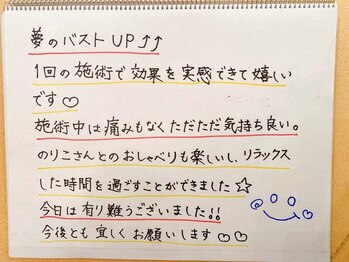 夢のバストUP⤴⤴
1回の施術で効果を実感できて嬉しい
です♡
施術中は痛みもなくただただ気持ち良い。
のりこさんとのおしゃべりも楽しいし、リラックス
した時間を過ごすことができました☆
今日は有り難うございました!!
今後とも宜しくお願いします♡♡